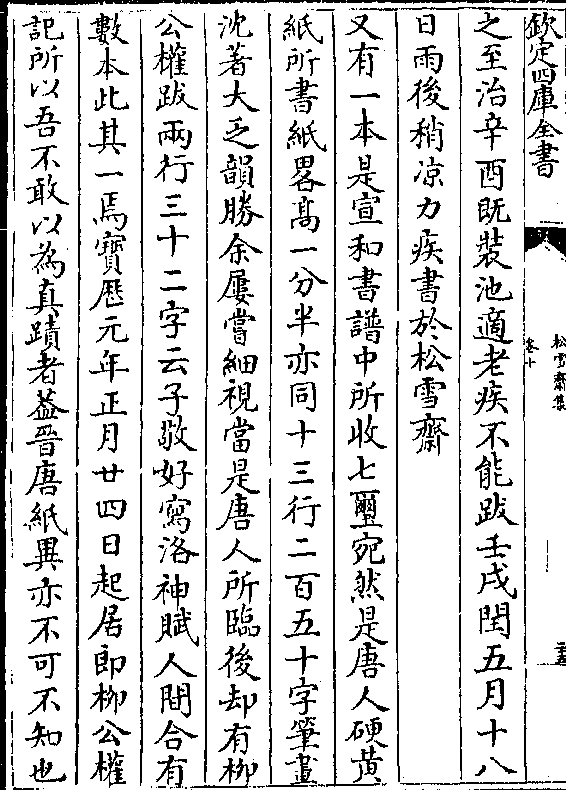 欽定四庫全書
松雪齋集
卷十
之至治辛酉既裝池適老疾不能跋壬戌閏五月十八
日雨後稍凉力疾書於松雪齋
又有一本是宣和書譜中所收七璽宛然是唐人硬黃
紙所書紙畧髙一分半亦同十三行二百五十字筆畫
沈著大乏韻勝余屢嘗細視當是唐人所臨後却有柳
公權跋兩行三十二字云子敬好寫洛神賦人間合有
數本此其一焉寶厯元年正月廿四日起居郎柳公權
記所以吾不敢以為真蹟者葢晉唐紙異亦不可不知也